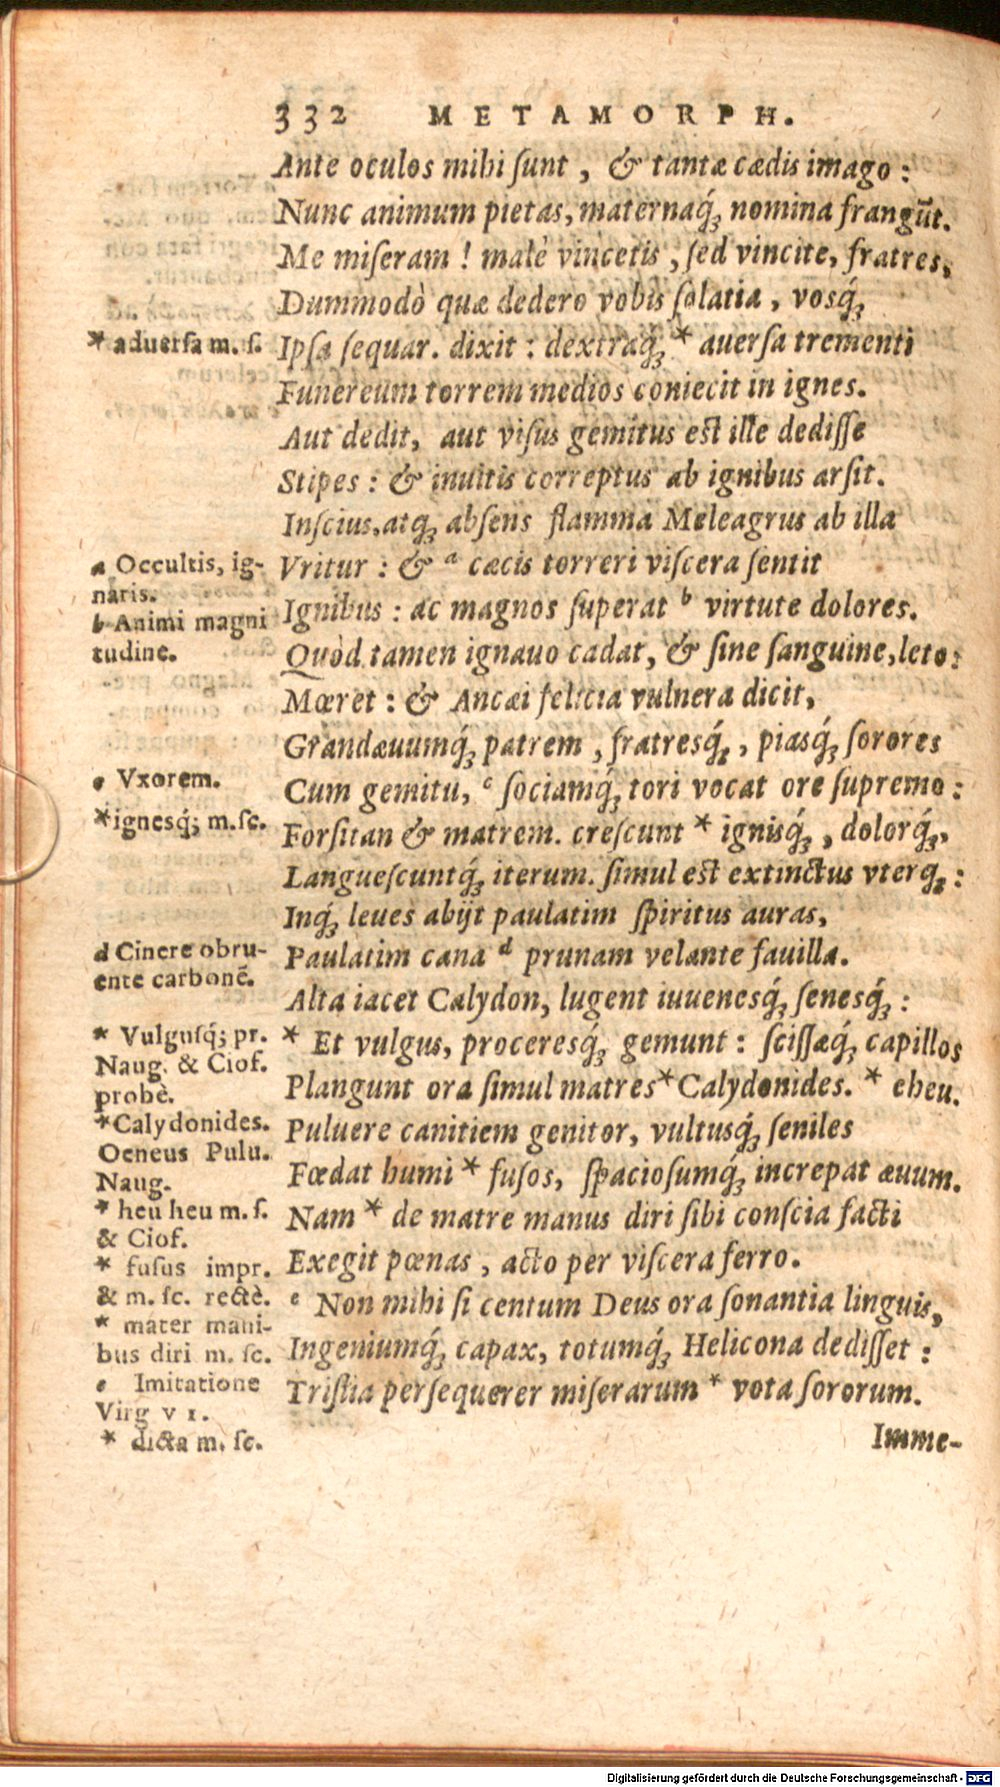 332 METAMORPH.
Ante oculos mihi ſunt, & tantæ cædis imago:
Nunc animum pietas, maternaq́; nomina frangūt.
Me miſeram! malè vincetis, ſed vincite, fratres,
Dummodò quæ dedero vobis ſolatia, vosq́;
* aduerſa m. ſ.
Ipſa ſequar. dixit: dextraq́; * auerſa trementi
Funereum torrem medios coniecit in ignes.
Aut dedit, aut viſus gemitus eſt ille dediſſe
Stipes: & inuitis correptus ab ignibus arſit.
Inſcius, atq; abſens flamma Meleagrus ab illa
a Occultis, ig-
naris.
b Animi magni
tudine.
Vritur: & a cæcis torreri viſcera ſentit
Ignibus: ac magnos ſuperat b virtute dolores.
Quòd tamen ignauo cadat, & ſine ſanguine, leto:
Mœret: & Ancæi felicia vulnera dicit,
Grandæuumq́; patrem, fratresq́;, piasq́; ſorores
c Vxorem.
Cum gemitu, c ſociamq́; tori vocat ore ſupremo:
* ignesq́; m. ſc.
Forſitan & matrem. creſcunt * ignisq́;, dolorq́;,
Langueſcuntq́; iterum. ſimul eſt extinctus vterq;:
Inq́; leues abijt paulatim ſpiritus auras,
d Cinere obru-
ente carbonē.
Paulatim cana d prunam velante fauilla.
Alta iacet Calydon, lugent iuuenesq́; ſenesq́;:
* Vulguſq́; pr.
Naug. & Ciof.
probè.
* Calydonides.
Oeneus Pulu.
Naug.
* heu heu m. ſ.
& Ciof.
* fuſus impr.
& m. ſc. rectè.
* mater mani-
bus diri m. ſc.
e Imitatione
Virg VI.
* dicta m. ſc.
* Et vulgus, proceresq́; gemunt: ſciſſæq́; capillos
Plangunt ora ſimul matres * Calydonides. * eheu.
Puluere canitiem genitor, vultusq́; ſeniles
Fœdat humi * fuſos, ſpacioſumq́; increpat æuum.
Nam * de matre manus diri ſibi conſcia facti
Exegit pœnas, acto per viſcera ferro.
e Non mihi ſi centum Deus ora ſonantia linguis,
Ingeniumq́; capax, totumq́; Helicona dediſſet:
Triſtia perſequerer miſerarum * vota ſororum.
Imme-
Digitalisierung gefördert durch die Deutsche Forschungsgemeinschaft - DFG